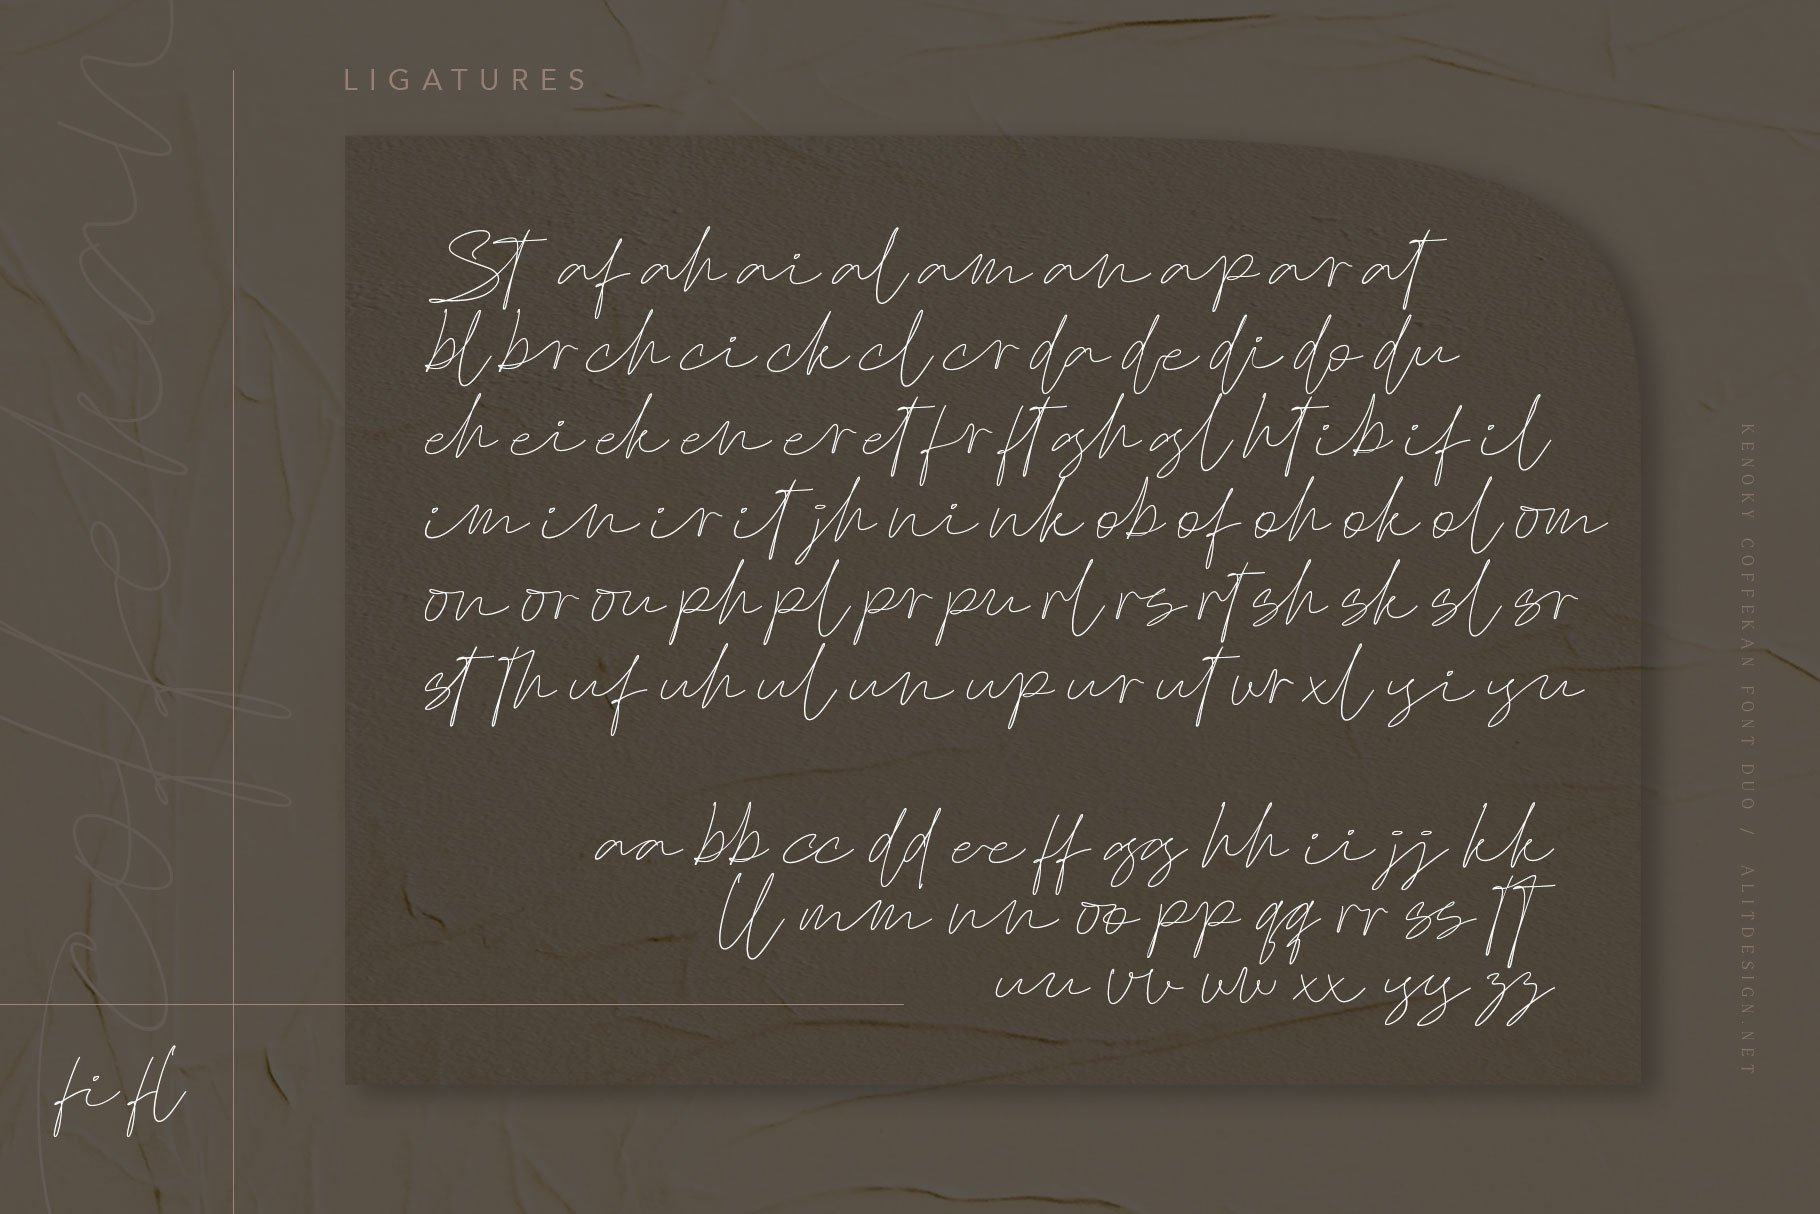 LIGATURES
St af ah ai al am an ap ar at
bl br ch ci ck cl cr da de di do du
eh ei ek en er et fr ft gh gl ht ib if il
im in ir it jh ni nk ob of oh ok ol om
on or ou ph pl pr pu rl rs rt sh sk sl sr
st Th uf uh ul un up ur ut wr xl yi yu
aa bb cc dd ee ff gg hh ii jj kk
ll mm nn oo pp qq rr ss tt
uu vv ww xx yy zz
fi fl
Coffekan
KENOKY COFFEKAN FONT DUO / ALITDESIGN.NET